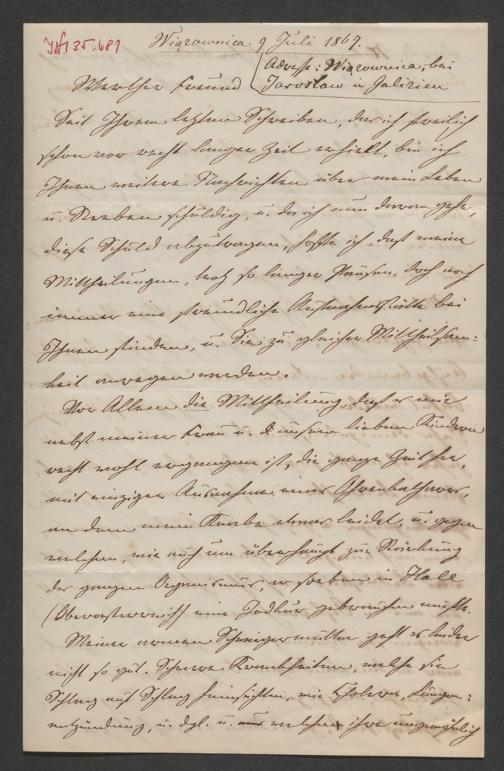 JN 135.681
Wiązownica 9 Juli 1867.
Adresse: Wiązownica, bei
Jaroslaw in Galizien
Werther Freund
Seit Ihrem letzten Schreiben, das ich freilich
schon vor recht langer Zeit erhielt, bin ich
Ihnen weitere Nachrichten über mein Leben
u. Streben schuldig, u. da ich nun daran gehe,
diese Schuld abzutragen, hoffe ich daß meine
Mittheilungen, trotz so langer Pausen, doch noch
immer eine freundliche Aufnahmsstätte bei
Ihnen finden, u. Sie zu gleicher Mittheilsam-
keit anregen werden.
Vor Allem die Mittheilung daß es mir
nebst meiner Frau u. unsern lieben Kindern
recht wohl ergangen ist, die ganze Zeit her,
mit einziger Ausnahme eines
an dem mein Knabe etwas leidet, u. gegen
welchen, wie auch um überhaupt zur Stärkung
des ganzen Organismus, er soeben in Hall
(Oberoesterreich) eine Jodkur gebrauchen mußte.
Meiner armen Schwiegermutter geht es leider
nicht so gut. Schwere Krankheiten, welche sie
Schlag auf Schlag heimsuchten, wie Cholera, Lungen-
entzündung, u. dgl. u. welchen ihre